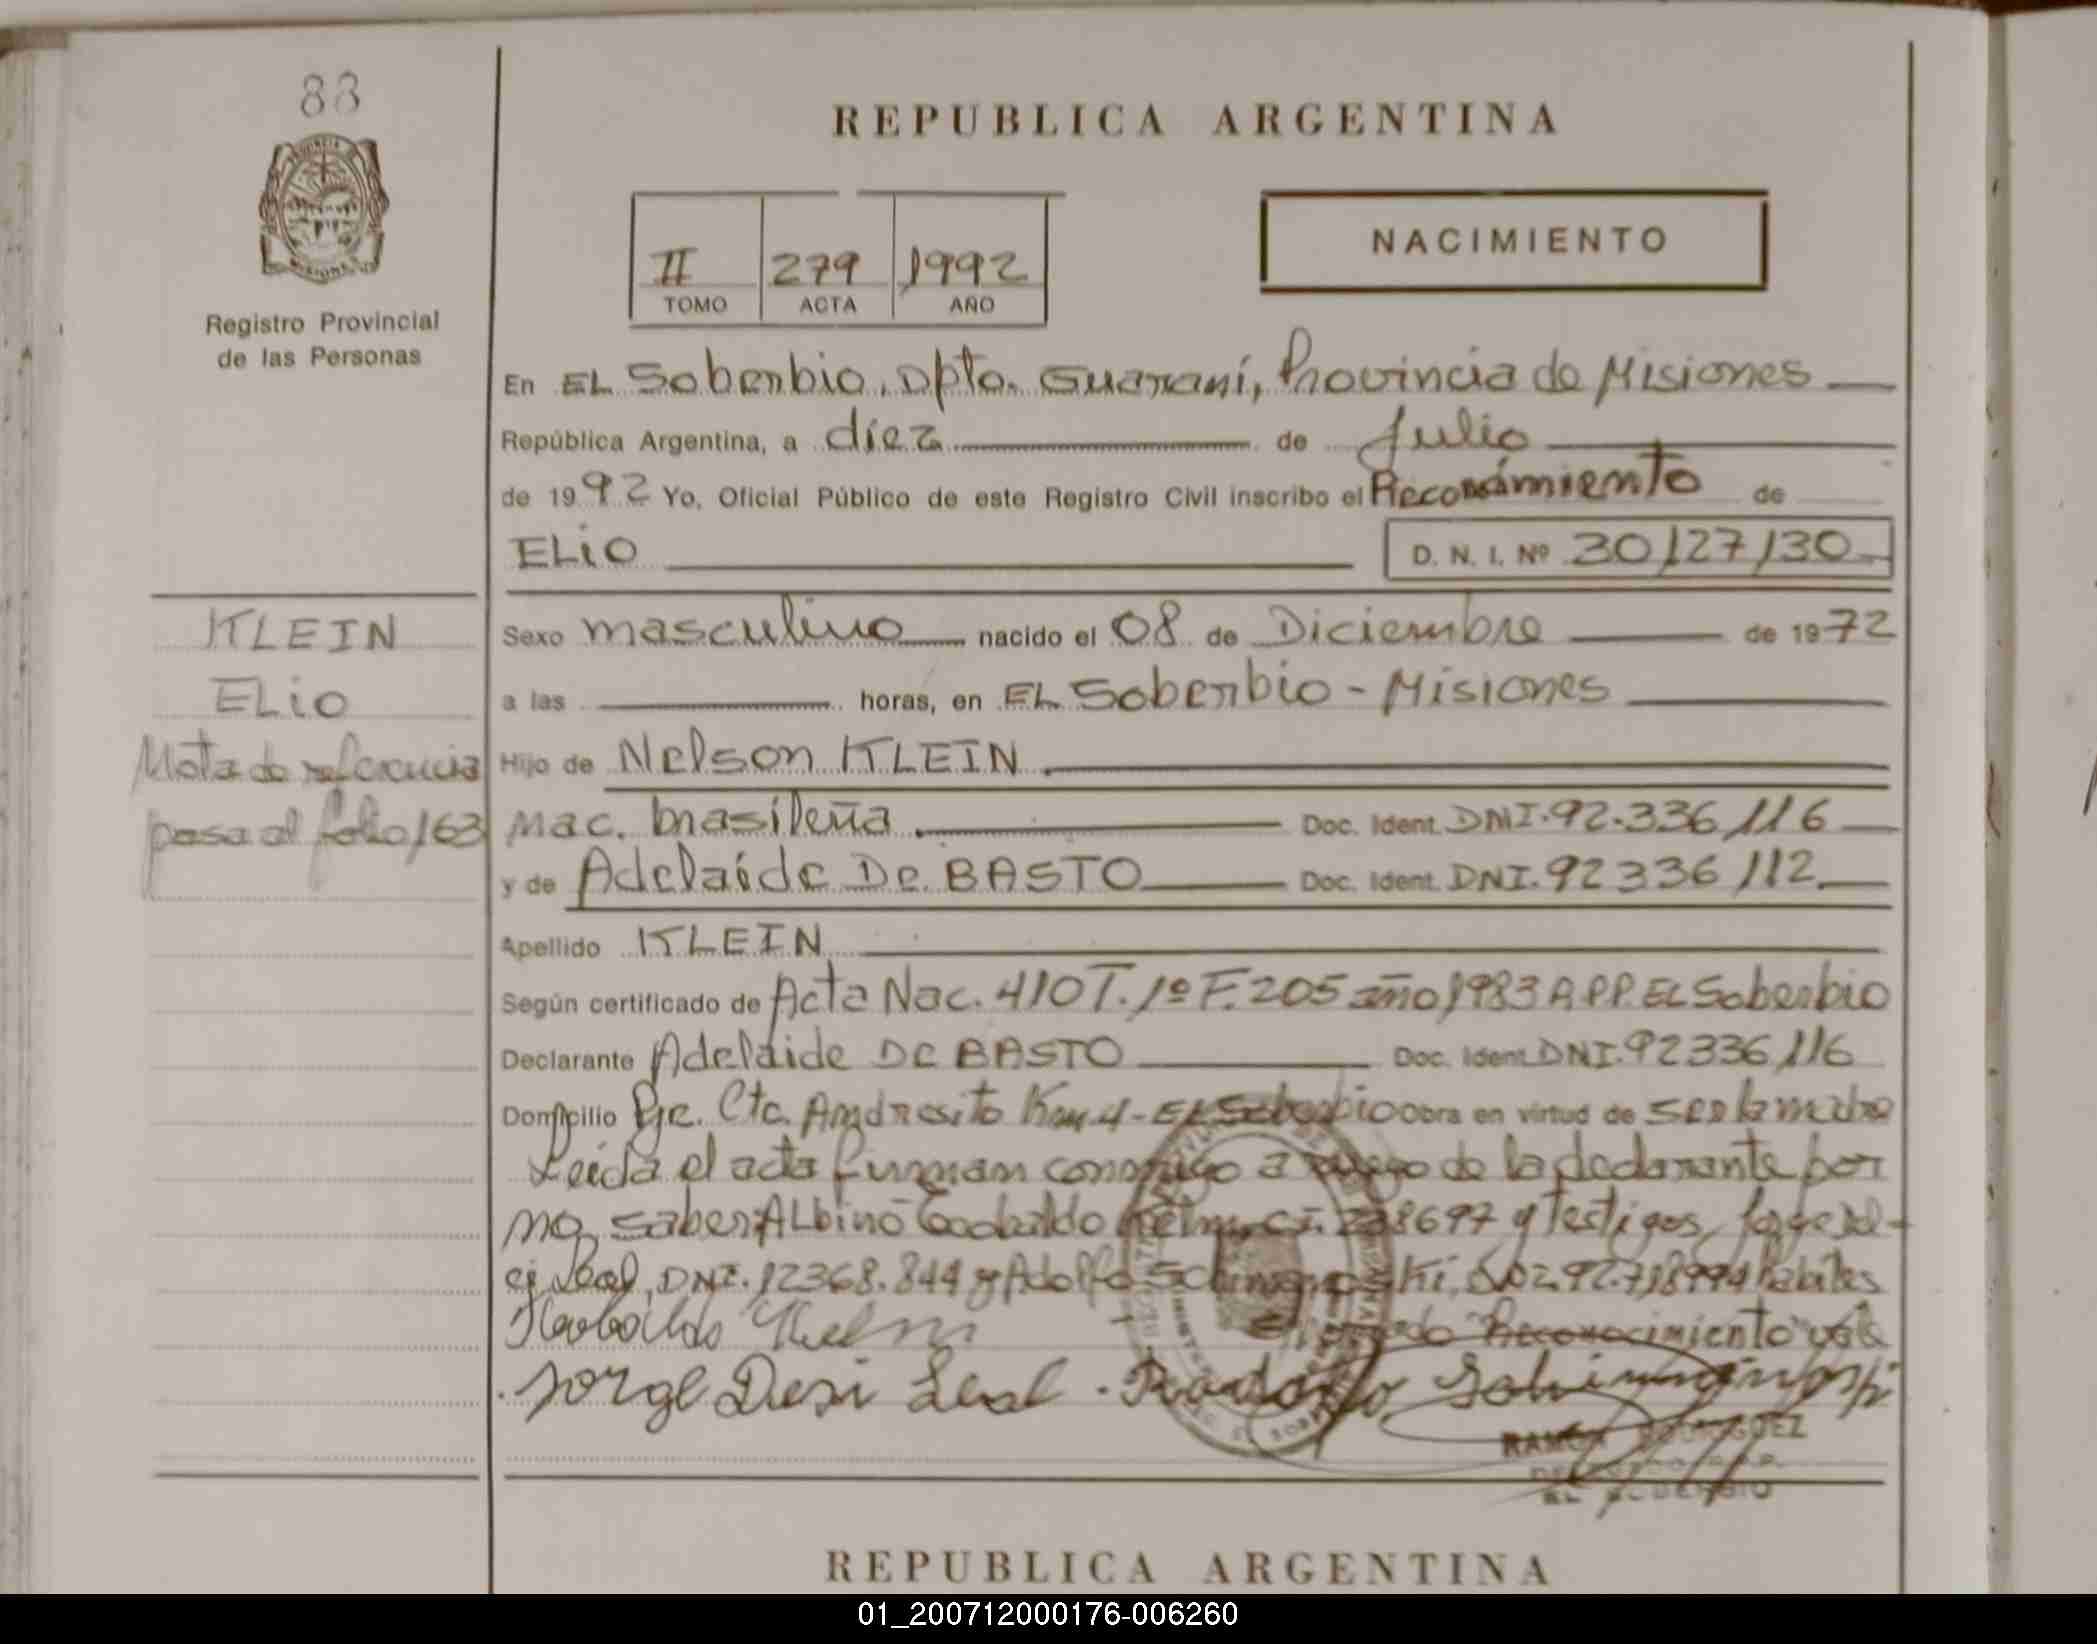 88
REPUBLICA ARGENTINA
II 279 1992
TOMO ACTA AÑO
NACIMIENTO
Registro Provincial
de las Personas
En EL Soberbio, Dpto. Guaraní, Provincia de Misiones
República Argentina, a diez de Julio
de 1992 Yo, Oficial Público de este Registro Civil inscribo el de
ELiO D. N. I. Nº 30/27/30
KLEIN
ELiO
Nota de referencia
pasa al folio 163
Sexo masculino nacido el 08 de Diciembre de 1972
a las horas, en EL Soberbio - Misiones
Hijo de Nelson KLEIN
Nac. brasileña Doc. Ident. DNI. 92.336/116
y de Adelaide De BASTO Doc. Ident. DNI. 92336/112
Apellido KLEIN
Según certificado de Acta Nac. 410 T. 1º F. 205 año 1983 A.P.P. EL Soberbio
Declarante Adelaide De BASTO Doc. Ident. DNI. 92336/116
Domicilio Pje. Cta. Andresito Km 4 - EL Soberbio Obra en virtud de ser la madre
Leida el acta firman conmigo a ruego de la declarante por
no saber, ALbino y Testigos, Jorge
Leal, DNI. 12368.844 y Adolfo
Reconocimiento vale
Jorge Desi Leal
RAMON RODRIGUEZ
EL SOBERBIO
REPUBLICA ARGENTINA
01_200712000176-006260